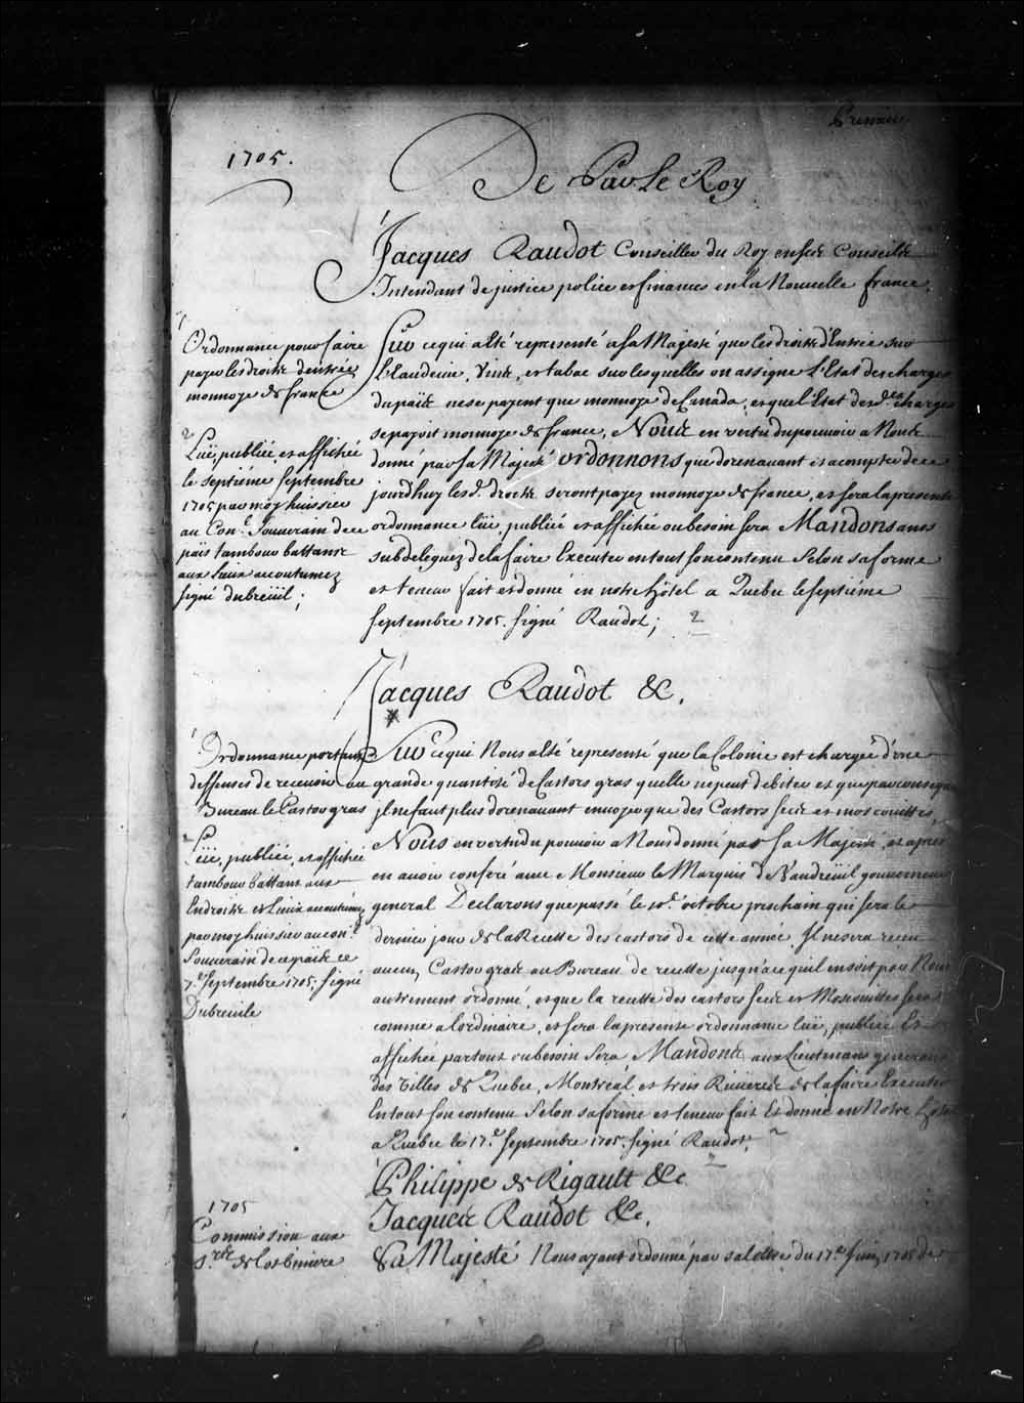 Premier
1705.
De Par Le Roy
Jacques Raudot Conseiller du Roy en ses Conseils
Intendant de justice police et finances en la Nouvelle france.
Ordonnance pour faire
payer les droits d'entrée
monnoye de france
Sur ce qui a esté representé a sa Majesté que les droits d'Entrée sur
L'Eaudevie, Vins, et tabac sur lesquelles on assigne L'Etat des charges
du païs ne se payent que monnoye de Canada, et que l'Etat des d. charges
se payoit monnoye de france, Nous en vertu du pouvoir a Nous
donné par sa Majesté ordonnons que dorenavant et a compter de ce
jourd'huy les d. droits seront payez monnoye de france, et sera la presente
ordonnance lüe, publiée et affichée ou besoin sera Mandons a nos
subdeleguez de la faire Executer en tout son contenu Selon sa forme
et teneur fait et donné en notre hôtel a Quebec le septiéme
septembre 1705. signé Raudot;
Lüe, publiée, et affichée
le septiéme septembre
1705 par moy huissier
au Con.l Souverain de ce
païs tambour battant
aux lieux accoutumez
signé dubreüil;
Jacques Raudot &c.
Ordonnance portant
deffenses de recevoir au
Bureau le Castor gras
Sur ce qui Nous a esté representé que la Colonie est chargée d'une
grande quantité de Castors gras qu'elle ne peut debiter et que par consequent
il ne faut plus dorenavant envoyer que des Castors secs et moscouittes,
Nous en vertu du pouvoir a Nous donné par Sa Majesté, et apres
en avoir conferé avec Monsieur le Marquis de Vaudreüil gouverneur
general Declarons que passé le 10.e octobre prochain qui sera le
dernier jour de la Recette des castors de cette année, Il ne sera receu
aucun Castor gras au Bureau de recette jusqu'a ce qu'il en soit par Nous
autrement ordonné, et que la recette des castors secs et Moscouittes sera
comme a l'ordinaire, et sera la presente ordonnance lüe, publiée Et
affichée partout ou besoin sera Mandons aux Lieutenans generaux
des Villes de Quebec, Montréal et trois Rivieres de la faire Executer
En tout son contenu Selon sa forme et teneur fait Et donné en Notre hôtel
a Quebec le 17.e septembre 1705. signé Raudot,
Lüe, publiée, et affichée
tambour battant aux
Endroits et Lieux accoutumez
par moy huissier au con.l
Souverain de ce païs ce
7.e septembre 1705. signé
Dubreüile
Philippe de Rigault &c
Jacques Raudot &c.
1705
Commission aux
S.rs de Lotbiniere
Sa Majesté Nous ayant ordonné par sa lettre du 17.e Juin 1705 de